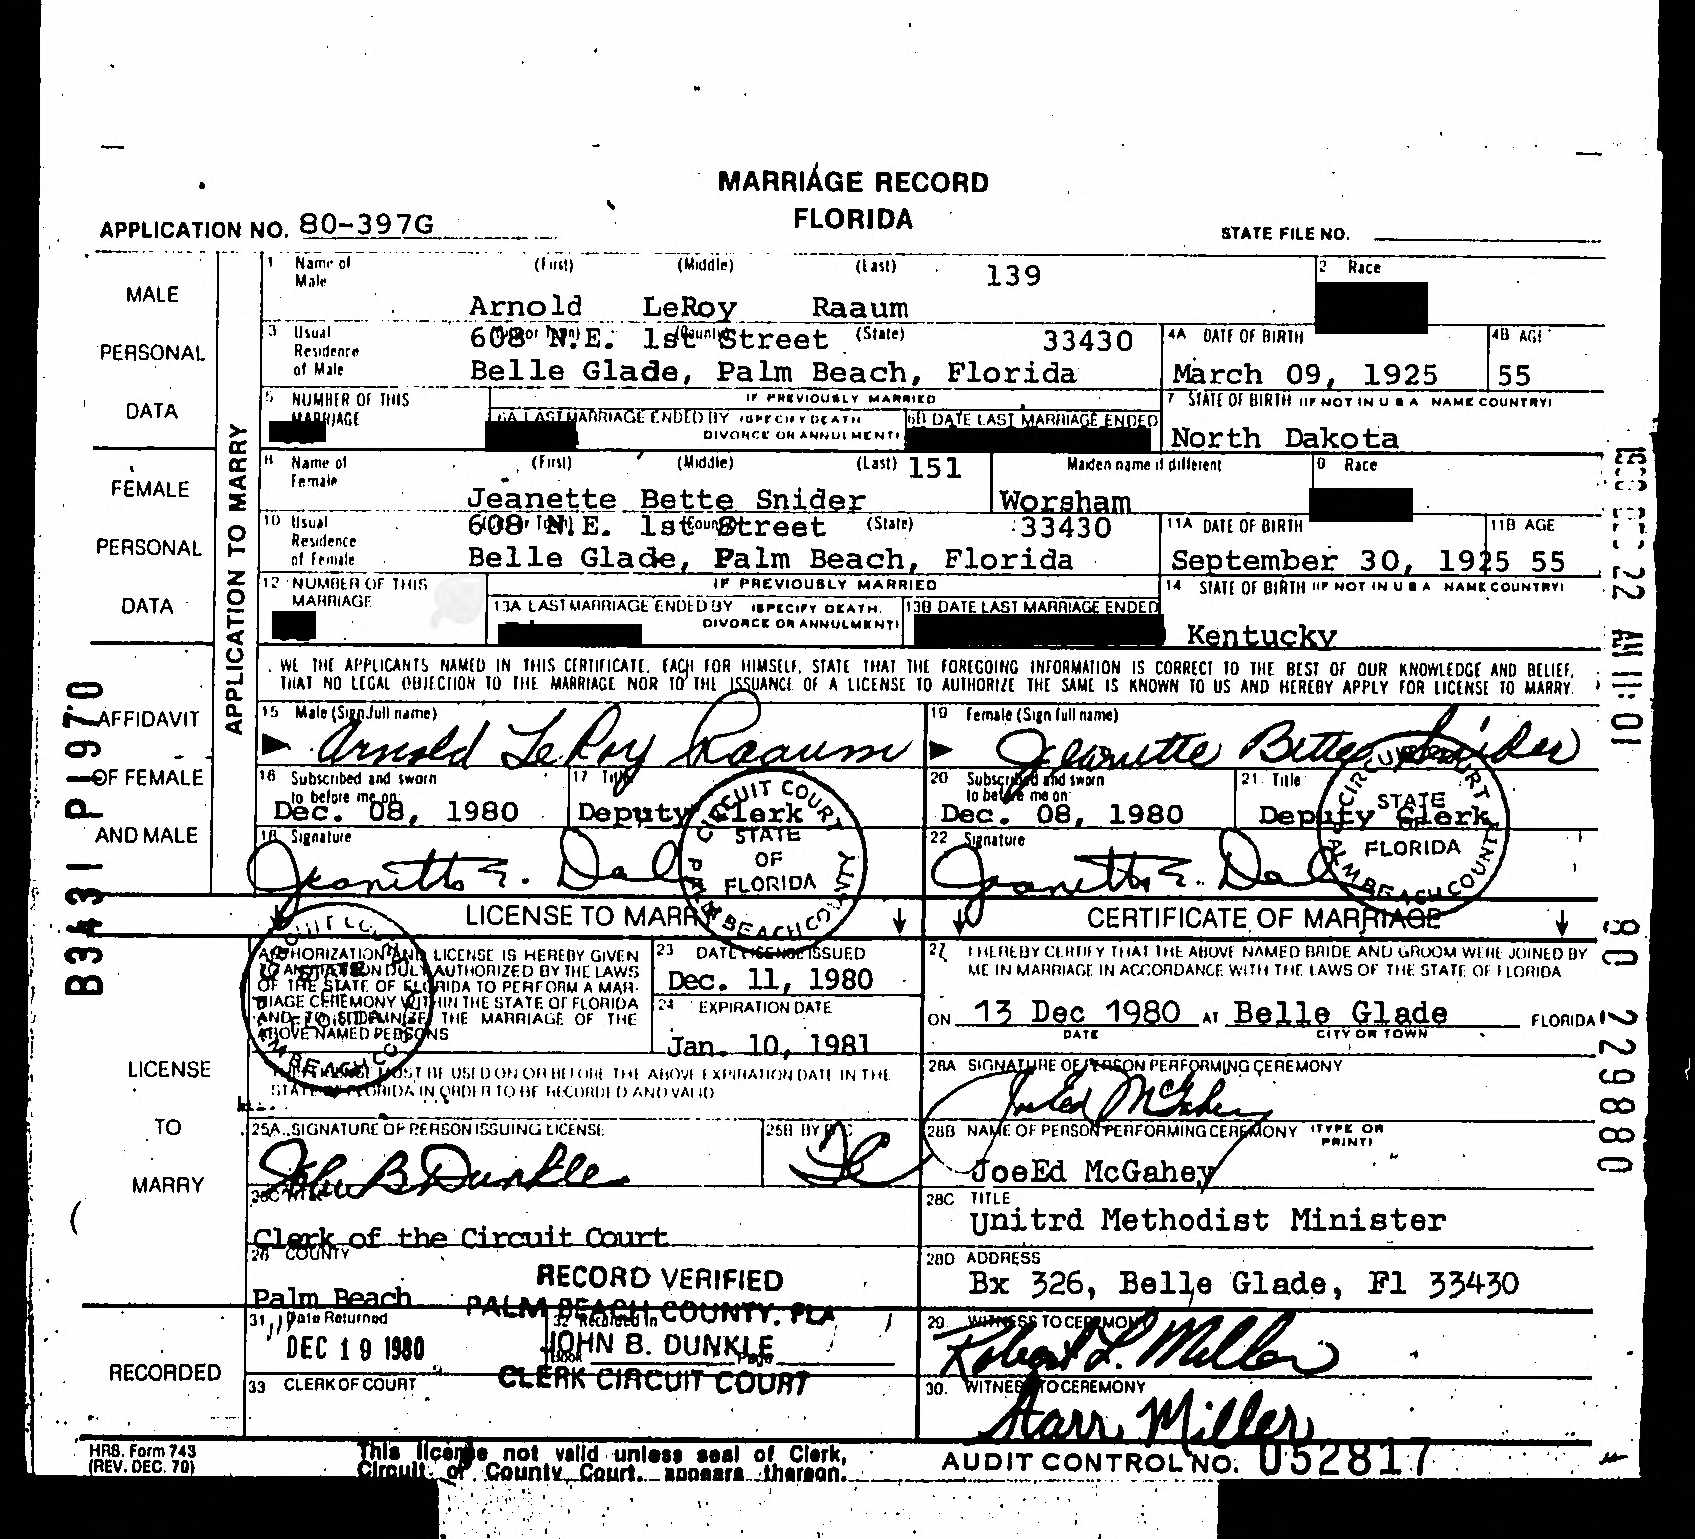 MARRIAGE RECORD
FLORIDA
APPLICATION NO. 80-397G
STATE FILE NO.
MALE
PERSONAL
DATA
FEMALE
PERSONAL
DATA
APPLICATION TO MARRY
1 Name of Male (First) (Middle) (Last) 139
Arnold LeRoy Raaum
2 Race
3 Usual Residence of Male (City or Town) (County) (State)
608 N.E. 1st Street 33430
Belle Glade, Palm Beach, Florida
4A DATE OF BIRTH
March 09, 1925
4B AGE
55
5 NUMBER OF THIS MARRIAGE
IF PREVIOUSLY MARRIED
6A LAST MARRIAGE ENDED BY (SPECIFY DEATH DIVORCE OR ANNULMENT)
6B DATE LAST MARRIAGE ENDED
7 STATE OF BIRTH (IF NOT IN U S A NAME COUNTRY)
North Dakota
8 Name of Female (First) (Middle) (Last) 151
Jeanette Bette Snider
Maiden name if different
Worsham
9 Race
10 Usual Residence of Female (City or Town) (County) (State)
608 N.E. 1st Street 33430
Belle Glade, Palm Beach, Florida
11A DATE OF BIRTH
September 30, 1925
11B AGE
55
12 NUMBER OF THIS MARRIAGE
IF PREVIOUSLY MARRIED
13A LAST MARRIAGE ENDED BY (SPECIFY DEATH, DIVORCE OR ANNULMENT)
13B DATE LAST MARRIAGE ENDED
14 STATE OF BIRTH (IF NOT IN U S A NAME COUNTRY)
Kentucky
WE THE APPLICANTS NAMED IN THIS CERTIFICATE, EACH FOR HIMSELF, STATE THAT THE FOREGOING INFORMATION IS CORRECT TO THE BEST OF OUR KNOWLEDGE AND BELIEF,
THAT NO LEGAL OBJECTION TO THE MARRIAGE NOR TO THE ISSUANCE OF A LICENSE TO AUTHORIZE THE SAME IS KNOWN TO US AND HEREBY APPLY FOR LICENSE TO MARRY.
AFFIDAVIT
OF FEMALE
AND MALE
15 Male (Sign full name)
Arnold LeRoy Raaum
19 Female (Sign full name)
Jeanette Bette Snider
16 Subscribed and sworn to before me on
Dec. 08, 1980
17 Title
Deputy Clerk
20 Subscribed and sworn to before me on
Dec. 08, 1980
21. Title
Deputy Clerk
18. Signature
22 Signature
CIRCUIT COURT
STATE
OF
FLORIDA
PALM BEACH COUNTY
CIRCUIT COURT
STATE
OF
FLORIDA
PALM BEACH COUNTY
B3431 P1970
DEC 22 AM 11:01
80 229880
LICENSE TO MARRY
CERTIFICATE OF MARRIAGE
LICENSE
TO
MARRY
AUTHORIZATION AND LICENSE IS HEREBY GIVEN
TO ANY PERSON DULY AUTHORIZED BY THE LAWS
OF THE STATE OF FLORIDA TO PERFORM A MAR-
RIAGE CEREMONY WITHIN THE STATE OF FLORIDA
AND TO SOLEMNIZE THE MARRIAGE OF THE
ABOVE NAMED PERSONS
23 DATE LICENSE ISSUED
Dec. 11, 1980
24 EXPIRATION DATE
Jan. 10, 1981
MUST BE USED ON OR BEFORE THE ABOVE EXPIRATION DATE IN THE
STATE OF FLORIDA IN ORDER TO BE RECORDED AND VALID
25A. SIGNATURE OF PERSON ISSUING LICENSE
John B Dunkle
25B BY DC
25C TITLE
Clerk of the Circuit Court
26 COUNTY
Palm Beach
27 I HEREBY CERTIFY THAT THE ABOVE NAMED BRIDE AND GROOM WERE JOINED BY
ME IN MARRIAGE IN ACCORDANCE WITH THE LAWS OF THE STATE OF FLORIDA
ON 13 Dec 1980 AT Belle Glade FLORIDA
DATE CITY OR TOWN
28A SIGNATURE OF PERSON PERFORMING CEREMONY
JoeEd McGahey
28B NAME OF PERSON PERFORMING CEREMONY (TYPE OR PRINT)
JoeEd McGahey
28C TITLE
Unitrd Methodist Minister
28D ADDRESS
Bx 326, Belle Glade, Fl 33430
RECORD VERIFIED
PALM BEACH COUNTY, FLA
JOHN B. DUNKLE
CLERK CIRCUIT COURT
RECORDED
31 Date Returned
DEC 19 1980
32 Recorded in
Book Page
33 CLERK OF COURT
29 WITNESS TO CEREMONY
Robert L. Miller
30. WITNESS TO CEREMONY
Starr Miller
HRS. Form 743
(REV. DEC. 70)
This license not valid unless seal of Clerk,
Circuit or County Court, appears thereon.
AUDIT CONTROL NO. 052817